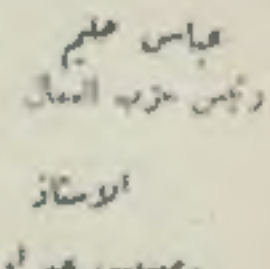 عباس حليم
رئيس حزب العمال
الاستاذ